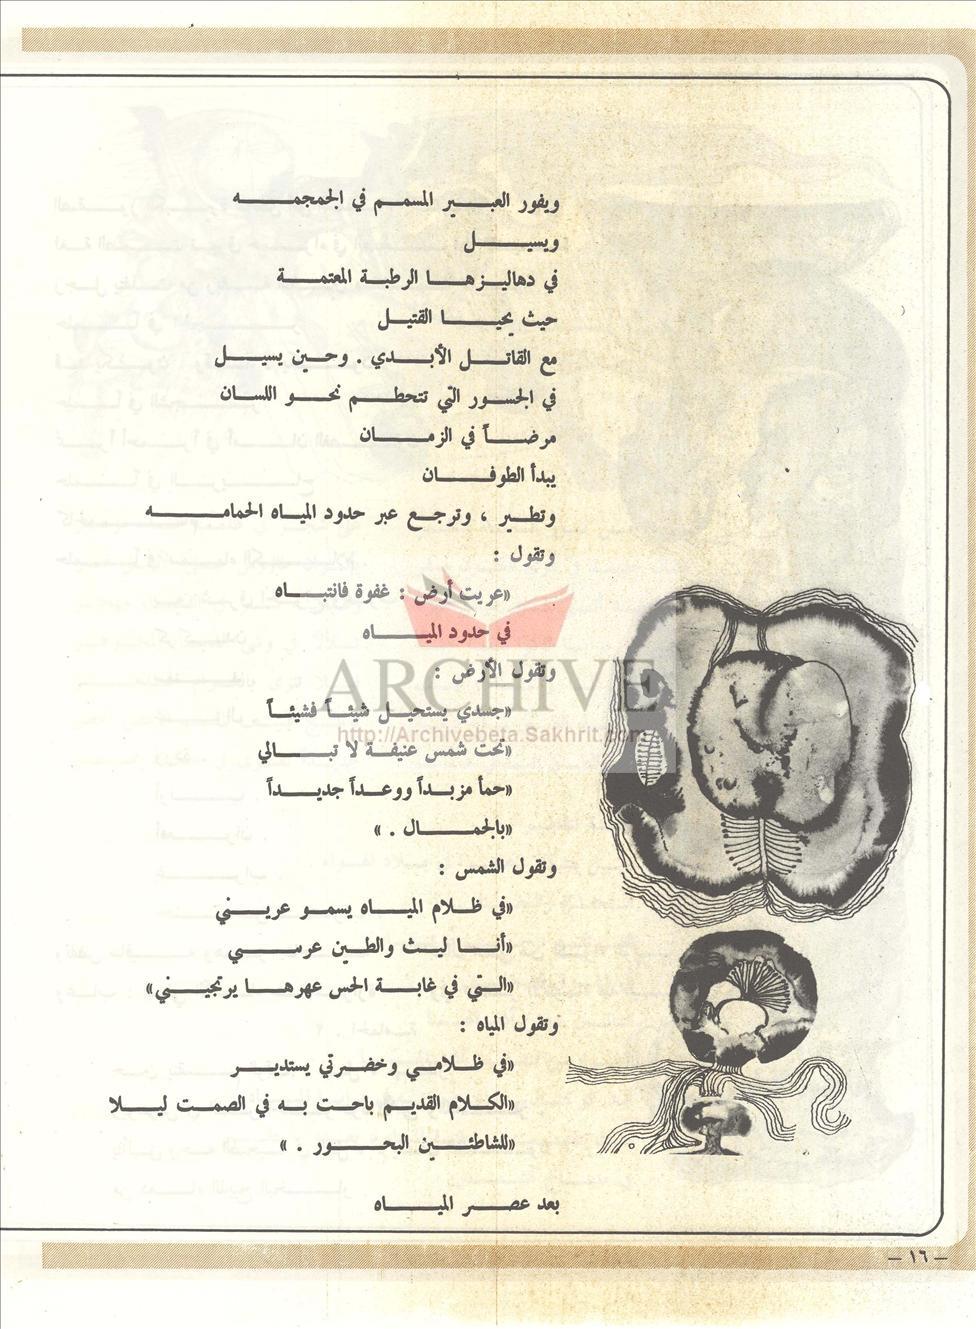 ويفور العبير المسمم في الجمجمه
ويسيل
في دهاليزها الرطبة المعتمة
حيث يحيا القتيل
مع القاتل الأبدي . وحين يسيل
في الجسور التي تتحطم نحو اللسان
مرضاً في الزمان
يبدأ الطوفان
وتطير ، وترجع عبر حدود المياه الحمامه
وتقول :
«عريت أرض : غفوة فانتباه
في حدود المياه
ARCHIVE
وتقول الأرض :
«جسدي يستحيل شيئاً فشيئاً
http://Archivebeta.Sakhrit.com
«تحت شمس عنيفة لا تبالي
«حمأ مزبداً ووعداً جديداً
«بالجمال . »
وتقول الشمس :
«في ظلام المياه يسمو عريني
«أنا ليث والطين عرسي
«التي في غابة الحس عهرها يرتجيني»
وتقول المياه :
«في ظلامي وخضرتي يستدير
«الكلام القديم باحت به في الصمت ليلا
«للشاطئين البحور . »
بعد عصر المياه
– ١٦ –